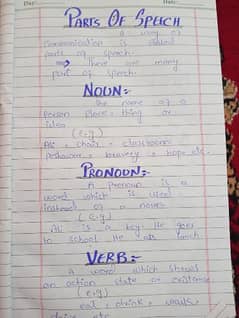 Day:
Date:
PARTS OF SPEECH
A way of
Communication is called
parts of speech.
⇒ There are many
part of speech.
NOUN:-
The name of a
Person place, thing or
idea.
(e.g)
Ali, chair, classroom
Peshawar, bravery, hope etc.
PRONOUN:-
A pronoun is a
word which is used
instead of a noun.
(e.g)
Ali is a boy. He goes
to school. He eats lunch
VERB:-
A word which shows
an action state or existence
(e.g)
eat, drink, walk,
drive etc